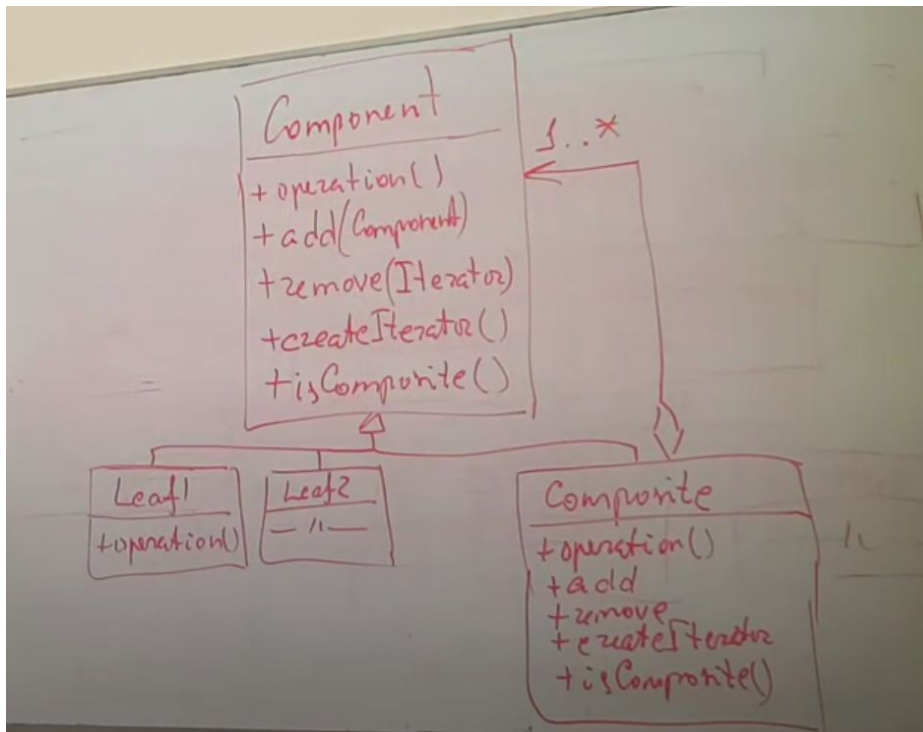 Component
+operation()
+add(Component)
+remove(Iterator)
+createIterator()
+isComposite()
1..*
Leaf1
+operation()
Leaf2
— // —
Composite
+operation()
+add
+remove
+createIterator
+isComposite()